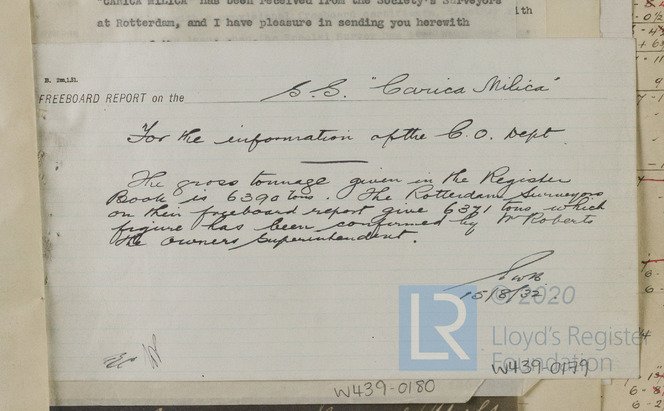 "CARICA MILICA" has been received from the Society's Surveyors
at Rotterdam, and I have pleasure in sending you herewith
ith
FREEBOARD REPORT on the S.S. "Carica Milica"
For the information of the C.O. Dept.
The gross tonnage given in the Register
Book is 6390 tons. The Rotterdam Surveyors
on their freeboard report give 6371 tons which
figure has been confirmed by Mr Roberts
the owners Superintendent.
15/8/32.
© 2020
LR
Lloyd's Register
Foundation
W439-0179
W439-0180